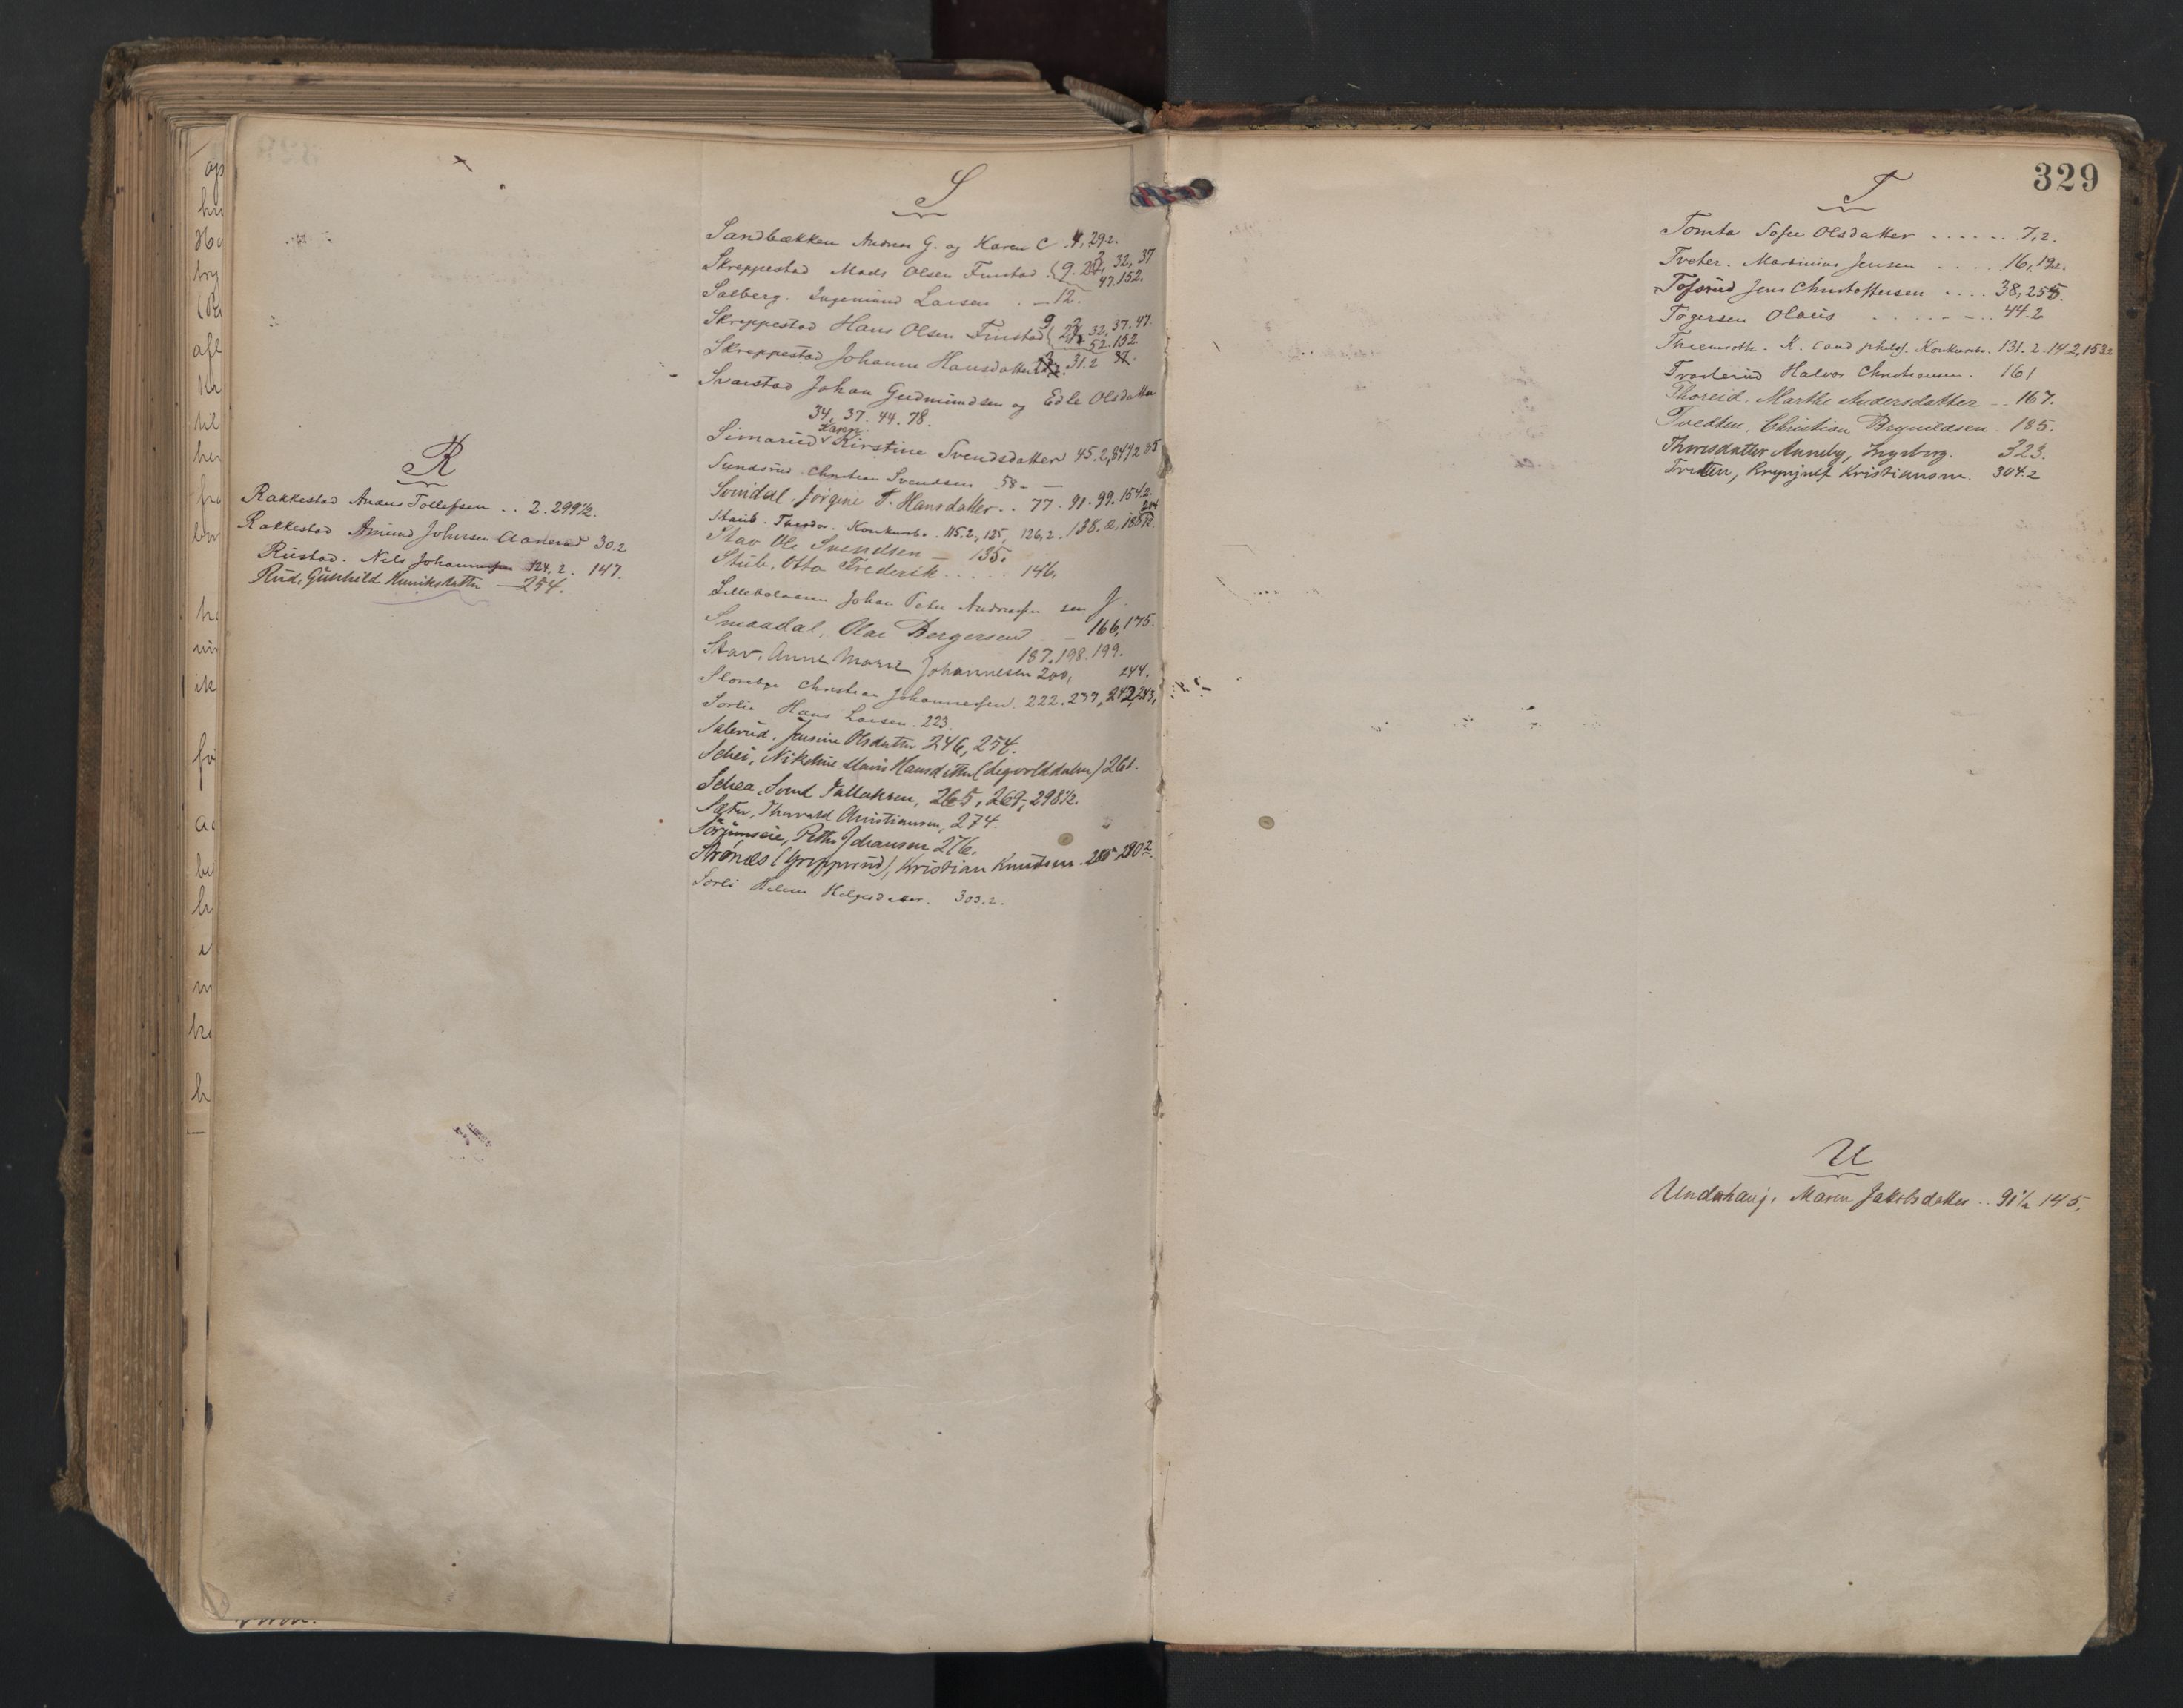 R
Rakkestad Anders Tollefsen . . 2. 299½.
Rakkestad Amund Johnsen Aanerud 30.2
Rustad. Nels Johannessen 124.2. 147.
Rud, Gunhild Henriksdatter — 254.
S
Sandbækken Andreas G. og Karen C. 4, 29.2.
Skreppestad Mads Olsen Finstad. 9. 27, 32, 37
47. 152.
Solberg. Ingemund Larsen . — 12.
Skreppestad Hans Olsen Finstad 9 27. 32. 37. 47.
52. 152.
Skreppestad Johanne Hansdatter 31.2
Svarstad Johan Gudmundsen og Edle Olsdatter
34, 37. 44. 78.
Karen
Simarud Kirstine Svendsdatter 45.2, 84½ 85
Sundsrud Christian Svendsen 58. —
Svindal. Jørgine T. Hansdatter. . 77. 91. 99. 154.2.
204
Staib. Theodor. Konkursbo. 115.2, 125, 126,2. 138.
Stav Ole Svendsen — 135.
Stub, Otto Frederik . . . . . 146,
Lillebalaasen Johan Peter Andreassen see J.
Smaadal, Olai Bergersen . — 166, 175.
187. 198. 199.
Stav, Anne Marie Johannesen 200,
244.
Christian Johannessen. 222. 239, 242, 243,
Sorlie Hans Larsen. 223.
Salerud, Jensine Olsdatter 246, 254.
Schei, Nikoline Marie Hansdatter 261.
Schea, Svend Tallaksen, 265, 269, 298½.
Sæter, Thorvald Christiansen, 274.
Petter Johansen 276.
Strønæs (Gripperud), Kristian Knudsen. 280.2.
Sorli Helene Helgesdatter. 303.2.
329
T
Tomta Sofie Olsdatter . . . . . . 7,2.
Tveter. Martinius Jensen . . . . 16, 19.2.
Tofsrud Jens Christoffersen . . . . 38, 255.
Togersen Olaus . . . . . . 44.2
K. cand philos. Konkursbo. 131.2. 142, 153.2
Halvor Christiansen. 161
Thoreid, Marthe Andersdatter . . 167.
Tvedten, Christian Brynildsen. 185.
Thoresdatter Anneby, Ingeborg. 323.
Tvedten, Brynjulf Kristiansen. 304.2
U
Underhaug, Maren Jakobsdatter . . 91½ 145,